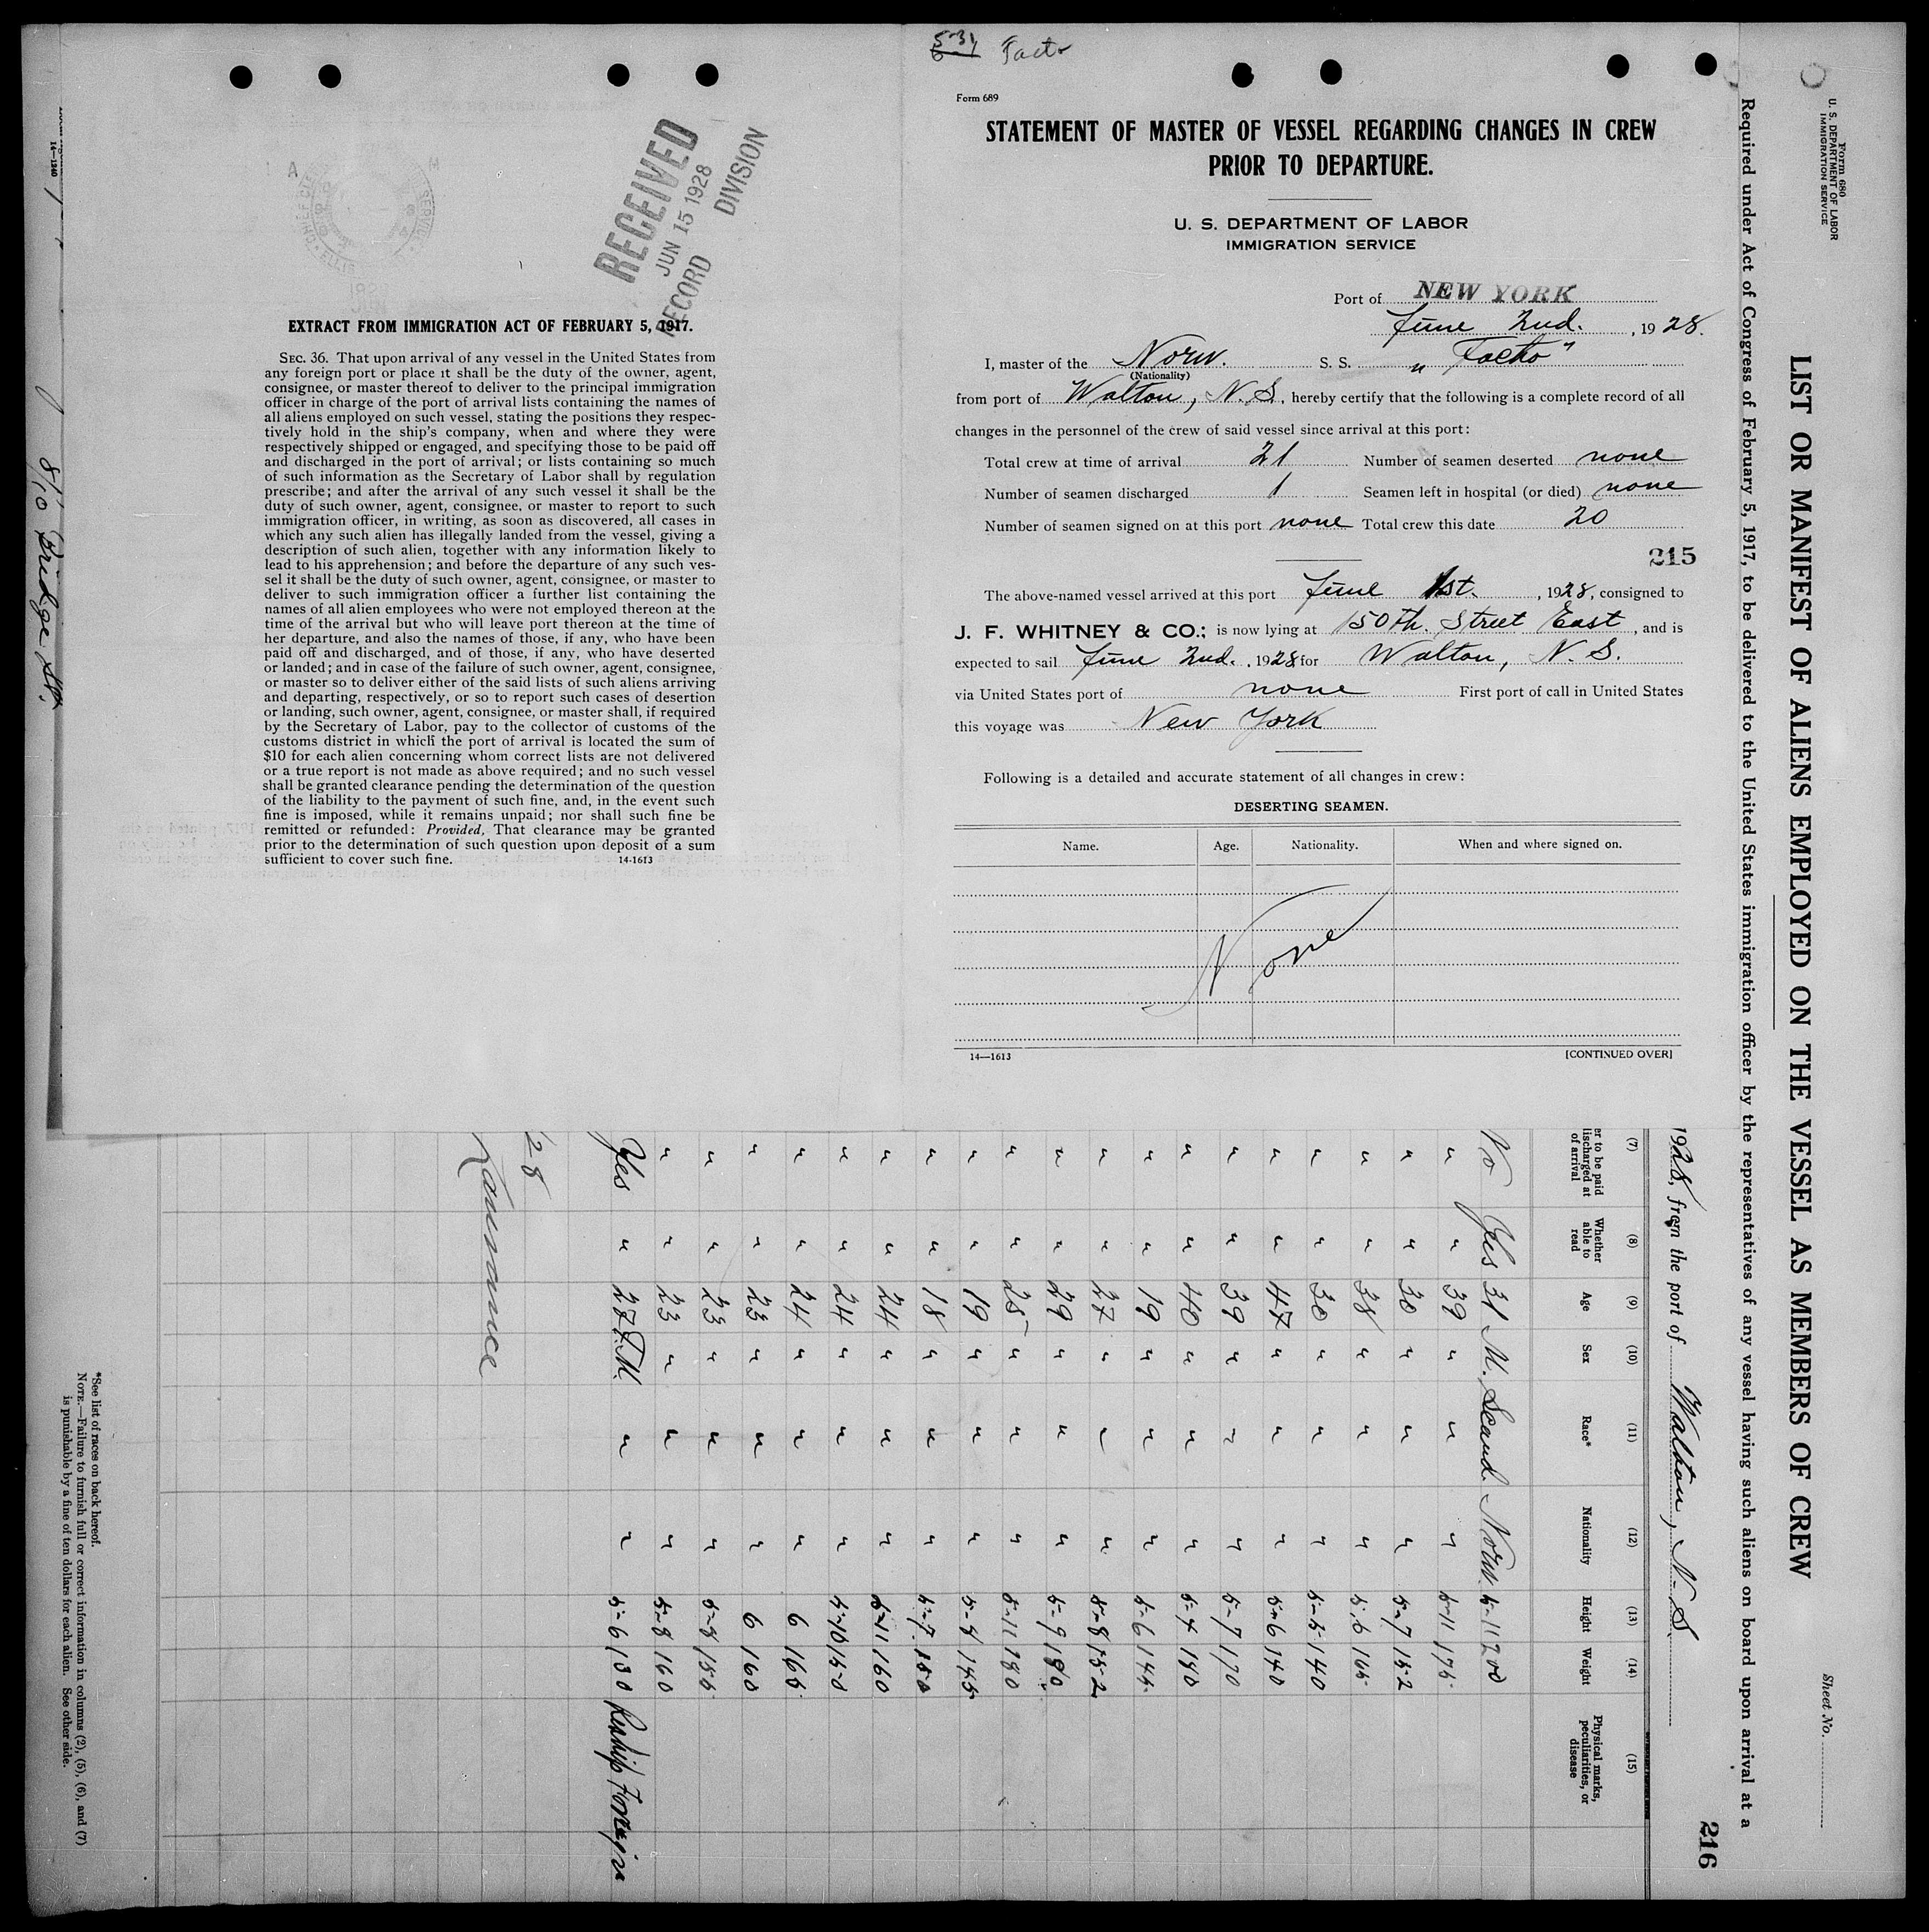 5-31 Facto
Form 689
STATEMENT OF MASTER OF VESSEL REGARDING CHANGES IN CREW
PRIOR TO DEPARTURE.
U. S. DEPARTMENT OF LABOR
IMMIGRATION SERVICE
Port of NEW YORK
June 2nd. , 1928.
I, master of the Norw. S. S. "Facto"
(Nationality)
from port of Walton, N. S., hereby certify that the following is a complete record of all
changes in the personnel of the crew of said vessel since arrival at this port:
Total crew at time of arrival 21 Number of seamen deserted none
Number of seamen discharged 1 Seamen left in hospital (or died) none
Number of seamen signed on at this port none Total crew this date 20
215
The above-named vessel arrived at this port June 1st. , 1928, consigned to
J. F. WHITNEY & CO.; is now lying at 150th. Street East, and is
expected to sail June 2nd. , 1928 for Walton, N. S.
via United States port of none First port of call in United States
this voyage was New York
Following is a detailed and accurate statement of all changes in crew:
DESERTING SEAMEN.
Name. Age. Nationality. When and where signed on.
None
14—1613 [CONTINUED OVER]
RECEIVED
JUN 15 1928
RECORD DIVISION
EXTRACT FROM IMMIGRATION ACT OF FEBRUARY 5, 1917.
SEC. 36. That upon arrival of any vessel in the United States from
any foreign port or place it shall be the duty of the owner, agent,
consignee, or master thereof to deliver to the principal immigration
officer in charge of the port of arrival lists containing the names of
all aliens employed on such vessel, stating the positions they respec-
tively hold in the ship's company, when and where they were
respectively shipped or engaged, and specifying those to be paid off
and discharged in the port of arrival; or lists containing so much
of such information as the Secretary of Labor shall by regulation
prescribe; and after the arrival of any such vessel it shall be the
duty of such owner, agent, consignee, or master to report to such
immigration officer, in writing, as soon as discovered, all cases in
which any such alien has illegally landed from the vessel, giving a
description of such alien, together with any information likely to
lead to his apprehension; and before the departure of any such ves-
sel it shall be the duty of such owner, agent, consignee, or master to
deliver to such immigration officer a further list containing the
names of all alien employees who were not employed thereon at the
time of the arrival but who will leave port thereon at the time of
her departure, and also the names of those, if any, who have been
paid off and discharged, and of those, if any, who have deserted
or landed; and in case of the failure of such owner, agent, consignee,
or master so to deliver either of the said lists of such aliens arriving
and departing, respectively, or so to report such cases of desertion
or landing, such owner, agent, consignee, or master shall, if required
by the Secretary of Labor, pay to the collector of customs of the
customs district in which the port of arrival is located the sum of
$10 for each alien concerning whom correct lists are not delivered
or a true report is not made as above required; and no such vessel
shall be granted clearance pending the determination of the question
of the liability to the payment of such fine, and, in the event such
fine is imposed, while it remains unpaid; nor shall such fine be
remitted or refunded: Provided, That clearance may be granted
prior to the determination of such question upon deposit of a sum
sufficient to cover such fine. 14-1613
Form 680
U. S. DEPARTMENT OF LABOR
IMMIGRATION SERVICE
Sheet No.
LIST OR MANIFEST OF ALIENS EMPLOYED ON THE VESSEL AS MEMBERS OF CREW
Required under Act of Congress of February 5, 1917, to be delivered to the United States immigration officer by the representatives of any vessel having such aliens on board upon arrival at a
216
1928, from the port of Walton, N. S.
(7) (8) (9) (10) (11) (12) (13) (14) (15)
er to be paid discharged at of arrival Whether able to read Age Sex Race* Nationality Height Weight Physical marks, peculiarities, or disease
No Yes 31 M. Scand. Norw. 5-11 200
" " 39 " " " 5-11 175
" " 30 " " " 5-7 152
" " 38 " " " 5-6 165
" " 30 " " " 5-5 140
" " 47 " " " 5-6 140
" " 39 " " " 5-7 170
" " 40 " " " 5-4 180
" " 19 " " " 5-6 145
" " 27 " " " 5-8 152
" " 29 " " " 5-9 180
" " 25 " " " 5-11 180
" " 19 " " " 5-8 145
" " 18 " " " 5-7 150
" " 24 " " " 5-11 160
" " 24 " " " 5-10 150
" " 24 " " " 6 165
" " 23 " " " 6 160
" " 23 " " " 5-8 155
" " 23 " " " 5-8 160
Yes " 27 " " 5-6 130 Reship Foreign
28
14—1240
8/10 Bridge St.
*See list of races on back hereof.
NOTE.—Failure to furnish full or correct information in columns (2), (5), (6), and (7)
is punishable by a fine of ten dollars for each alien. See other side.